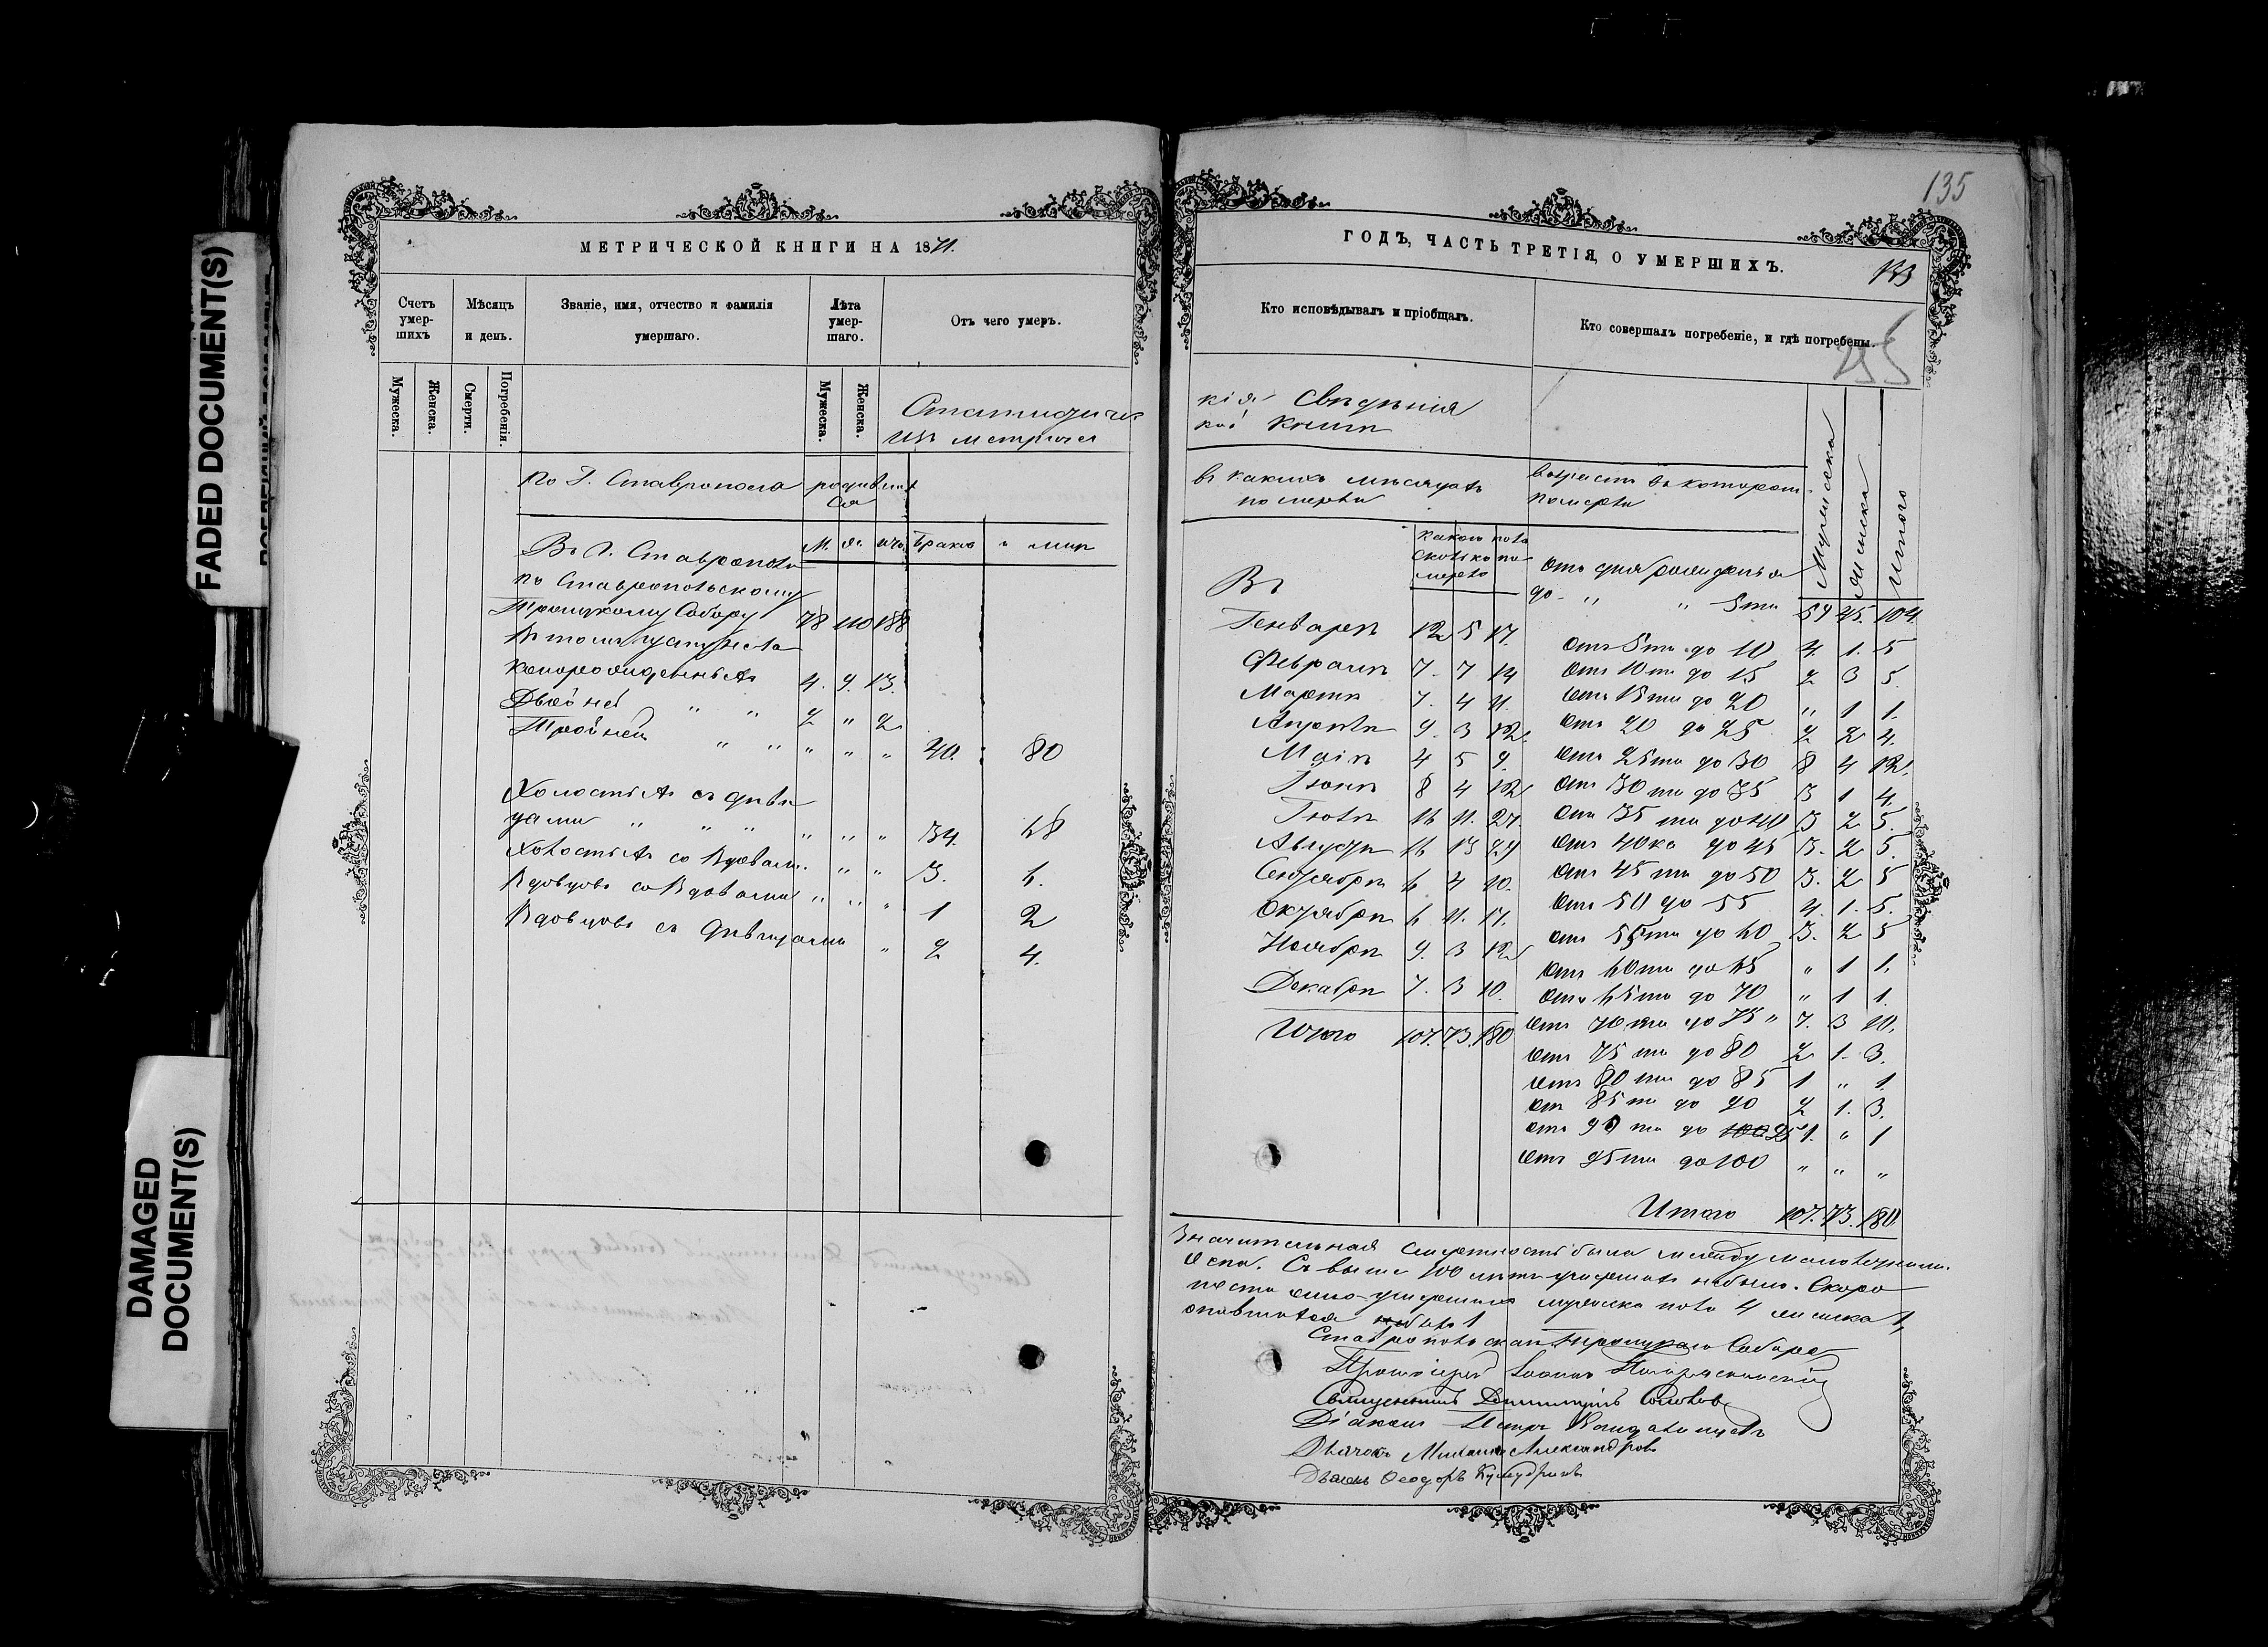 FADED DOCUMENT(S)
DAMAGED
DOCUMENT(S)
МЕТРИЧЕСКОЙ КНИГИ НА 1871.
Счетъ умер-шихъ
Мѣсяцъ и день.
Званіе, имя, отчество и фамилія умершаго.
Лѣта умер-шаго.
Отъ чего умеръ.
Мужеска.
Женска.
Смерти.
Погребенія.
Мужеска.
Женска.
Статистичес
изъ метричес
по Г. Ставрополю
М. Ж. Браковъ и лицъ
Въ г. Ставрополѣ
по Ставропольскому
Троицкому Собору 78 110 188
4. 9. 13.
Двойней " " 2 " 2
Тройней " " " " " 40. 80
Холостыхъ съ дѣви
цами " " " " " " 34. 68
Холостыхъ со вдовами " " 3. 6.
Вдовцовъ со вдовами " " " 1 2
Вдовцовъ съ дѣвицами " 2 4.
135
ГОДЪ, ЧАСТЬ ТРЕТІЯ, О УМЕРШИХЪ.
133
Кто исповѣдывалъ и пріобщалъ.
Кто совершалъ погребеніе, и гдѣ погребены.
кія свѣдѣнія
кой книги
въ какихъ мѣсяцахъ
померли
возрастъ въ которомъ
померли
Мужеска
женска
итого
какого пола
сколько по-
мерло
Въ
отъ дня рожденія
до " " 5ти 59 45. 104.
Генварѣ 12 5 17.
отъ 5ти до 10 4. 1. 5
Февралѣ 7. 7 14
отъ 10ти до 15 2 3 5.
Мартѣ 7. 4 11.
отъ 15ти до 20 " 1 1.
Апрѣлѣ 9. 3 12.
отъ 20 до 25 2 2 4.
Маіѣ 4 5 9.
отъ 25ти до 30 8 4 12.
Іюнѣ 8 4 12
отъ 30ти до 35 3 1 4.
Іюлѣ 16 11. 27.
отъ 35ти до 40 3 2 5.
Августѣ 16 13 29
отъ 40ка до 45 3. 2 5.
Сентябрѣ 6 4 10.
отъ 45ти до 50 3. 2 5
Октябрѣ 6 11. 17.
отъ 50 до 55 4. 1. 5.
Ноябрѣ 9. 3 12
отъ 55ти до 60 3. 2 5
Декабрѣ 7. 3 10.
отъ 60ти до 65 " 1 1.
отъ 65ти до 70 " 1 1.
Итого 107. 73. 180
отъ 70ти до 75 " 7. 3 10.
отъ 75ти до 80 2 1. 3.
отъ 80ти до 85 1 " 1.
отъ 85ти до 90 2 1. 3.
отъ 90ти до 100 95 1. " 1
отъ 95ти до 100 " " "
Итого 107. 73. 180
Значительная смертность была между малолетними.
Оспа. Свыше 100 лѣтъ умершихъ небыло. Скоро
умершихъ мужеска пола 4 женска 1,
Ставропольскаго Троицкаго Собора
Протоіерей Іоаннъ
Священникъ Димитрій Соловьев
Діаконъ Петръ
Дьячокъ Михаилъ Александровъ
Ѳеодоръ